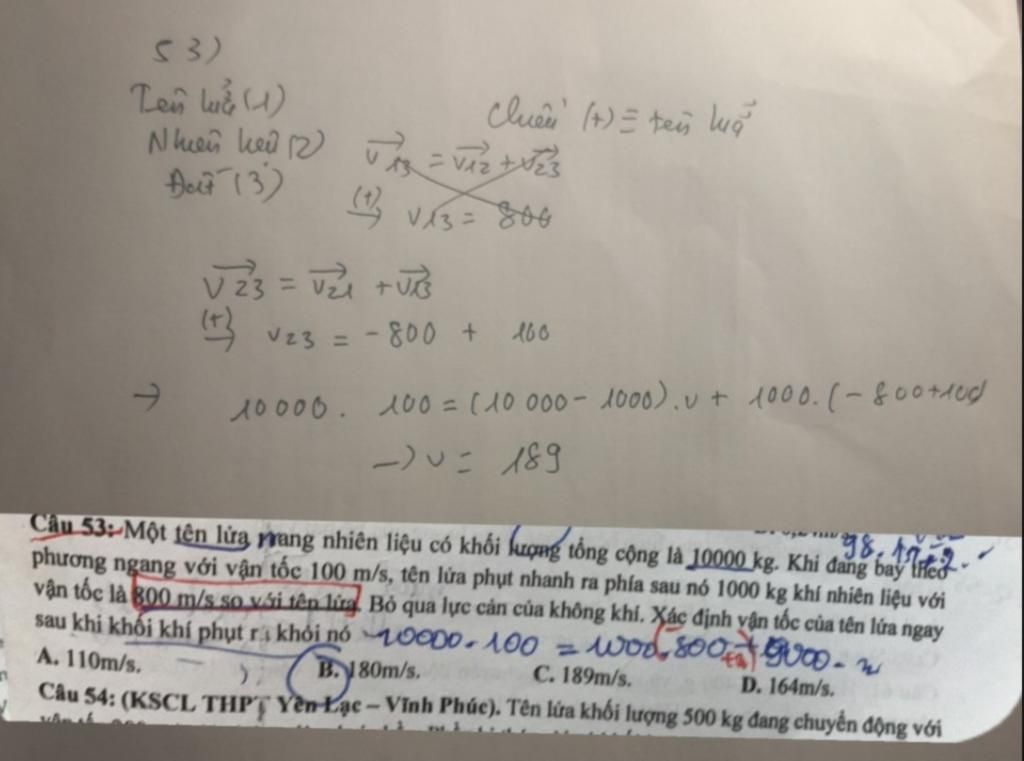 53)
Tên lửa (1)
Chiều (+) ≡ tên lửa
Nhiên liệu (2)
v13 = v12 + v23
Đất (3)
(+) → v13 = 800
v23 = v21 + v13
(+) → v23 = -800 + 100
→ 10000. 100 = (10 000 - 1000).v + 1000.(-800+100)
→ v = 189
Câu 53: Một tên lửa mang nhiên liệu có khối lượng tổng cộng là 10000 kg. Khi đang bay theo
phương ngang với vận tốc 100 m/s, tên lửa phụt nhanh ra phía sau nó 1000 kg khí nhiên liệu với
vận tốc là 800 m/s so với tên lửa. Bỏ qua lực cản của không khí. Xác định vận tốc của tên lửa ngay
sau khi khối khí phụt ra khỏi nó
A. 110m/s. B. 180m/s. C. 189m/s. D. 164m/s.
Câu 54: (KSCL THPT Yên Lạc – Vĩnh Phúc). Tên lửa khối lượng 500 kg đang chuyển động với